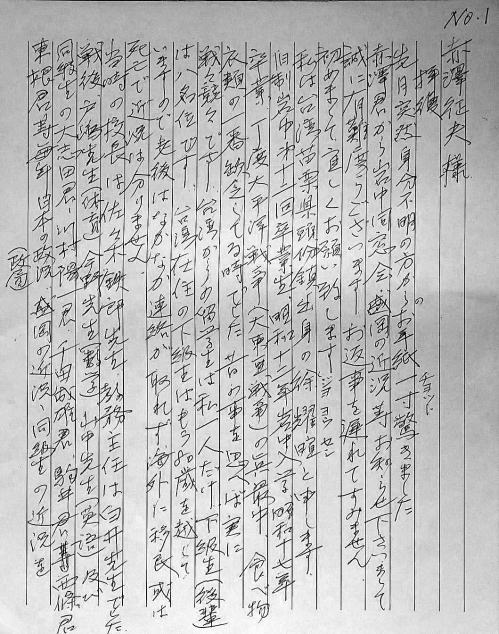 No.1
赤澤征夫様
拝復
先月突然身分不明の方からのお手紙一寸驚きました
チョット
赤澤君から岩中同窓会、盛岡の近況等お知らせ下さいまして
誠に有難度うございます お返事を遅れてすみません
初めまして宜しくお願い致します
ジョ ヨウ セン
私は台湾苗栗県頭份鎮出身の徐耀暄と申します.
旧制岩中第十二回卒業生.昭和十二年岩中入学昭和十七年
卒業、丁度大平洋戦争(大東亜戦争)の真最中 食べ物
衣類の一番欠乏してる時でした 昔の事を思へば実に
戦々競々です.台湾からの留学生は私一人だけ 下級生(後輩
は八名位です. 台湾在住の下級生はもう80歳を越して
いますので老後はなかなか連絡が取れず 海外に移民或は
死亡で近況は分りません.
当時の校長は佐々木 先生 教務主任は臼井先生でした
戦後 先生(体育) 先生(数学)山中先生(英語)及び
同級生の大志田君、川村陽一君、千田 君、駒井君 西條君
東根君 日本の政況、盛岡の近況、同級生の近況を
(政局)